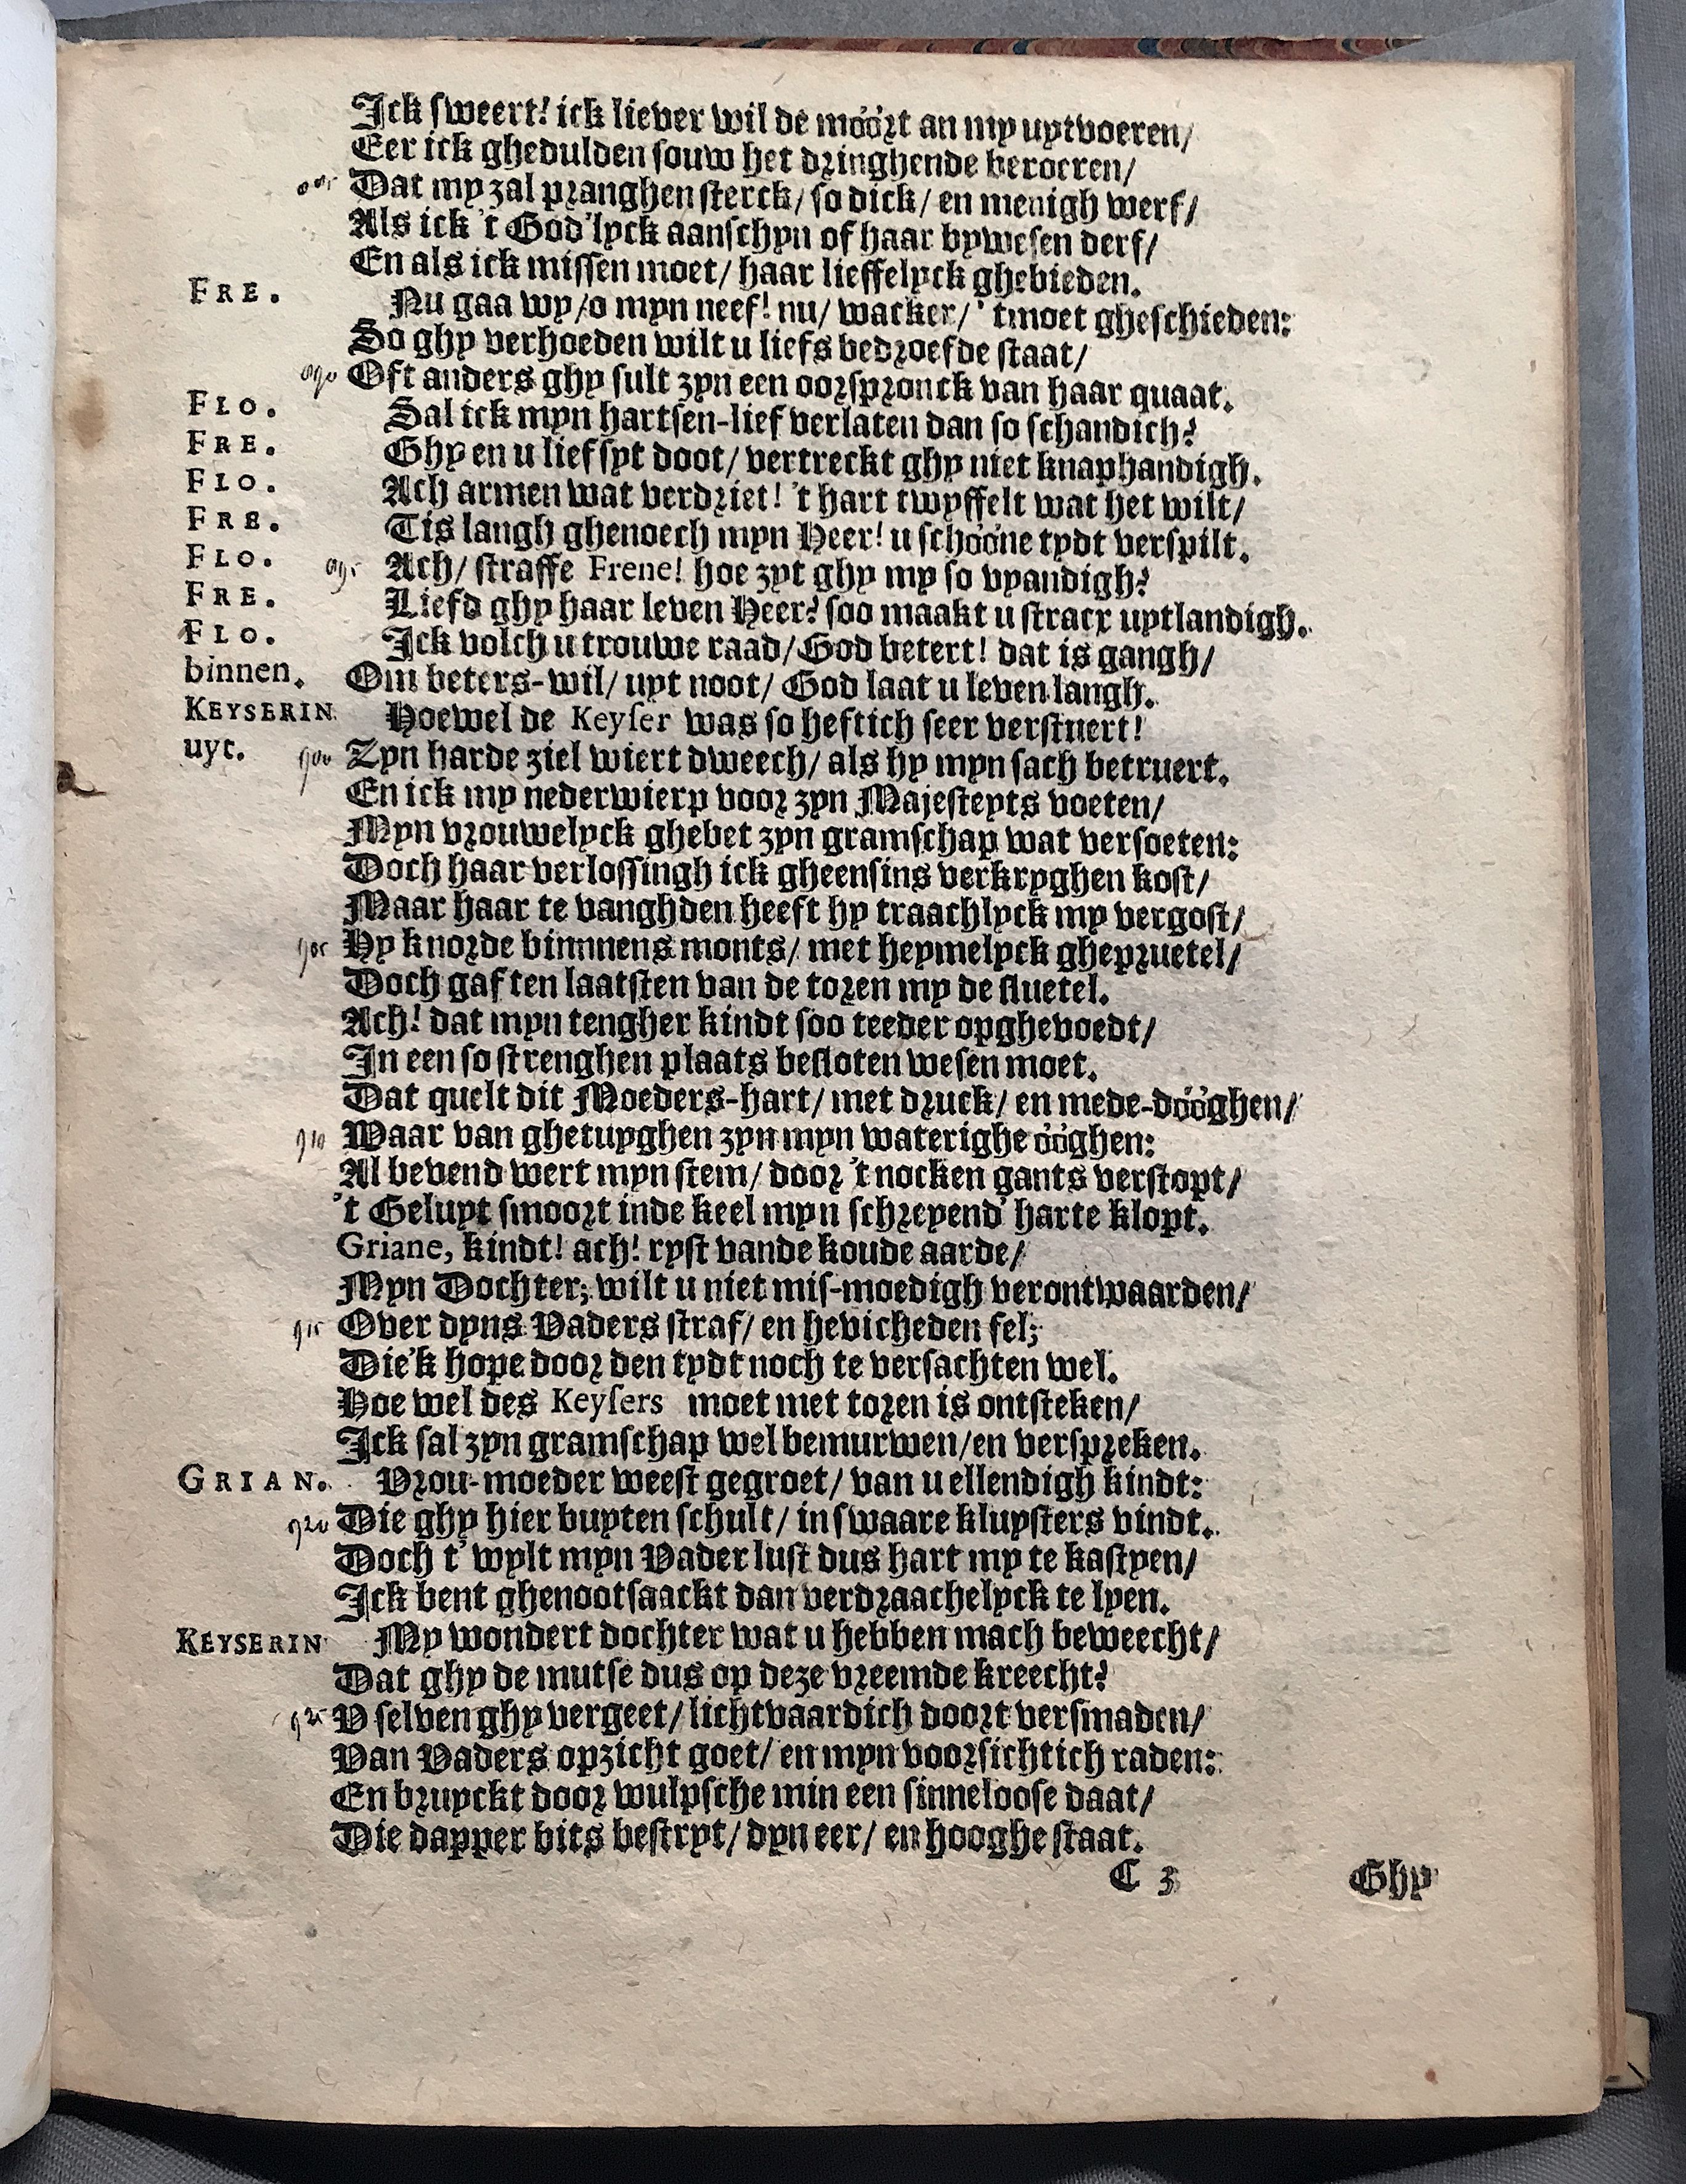 Ick sweert! ick liever wil de móórt an my uytvoeren/
Eer ick ghedulden souw het dringhende beroeren/
Dat my zal pranghen sterck/ so dick/ en menigh werf/
Als ick 't God'lyck aanschyn of haar bywesen derf/
En als ick missen moet/ haar lieffelyck ghebieden.
FRE. Nu gaa wy/o myn neef! nu/ wacker/ 'tmoet gheschieden:
So ghy verhoeden wilt u liefs bedroefde staat/
890 Oft anders ghy sult zyn een oorspronck van haar quaat.
FLO. Sal ick myn hartsen-lief verlaten dan so schandich?
FRE. Ghy en u lief syt doot/ vertreckt ghy niet knaphandigh.
FLO. Ach armen wat verdriet! 't hart twyffelt wat het wilt/
FRE. Tis langh ghenoech myn Heer! u schóóne tydt verspilt.
FLO. 895 Ach/ straffe Frene! hoe zyt ghy my so vyandigh?
FRE. Liefd ghy haar leven Heer? soo maakt u stracx uytlandigh.
FLO. Ick volch u trouwe raad/ God betert! dat is gangh/
binnen. Om beters-wil/ uyt noot/ God laat u leven langh.
KEYSERIN. Hoewel de Keyser was so heftich seer verstuert!
uyt. 900 Zyn harde ziel wiert dweech/ als hy myn sach betruert.
En ick my nederwierp voor zyn Majesteyts voeten/
Myn vrouwelyck ghebet zyn gramschap wat versoeten:
Doch haar verlossingh ick gheensins verkryghen kost/
Maar haar te vanghden heeft hy traachlyck my vergost/
905 Hy knorde binnnens monts/ met heymelyck ghepruetel/
Doch gaf ten laatsten van de toren my de sluetel.
Ach! dat myn tengher kindt soo teeder opghevoedt/
In een so strenghen plaats besloten wesen moet.
Dat quelt dit Moeders-hart/ met druck/ en mede-dóóghen/
910 Waar van ghetuyghen zyn myn waterighe óóghen:
Al bevend wert myn stem/ door 't nocken gants verstopt/
't Geluyt smoort inde keel myn schreyend' harte klopt.
Griane, kindt! ach! ryst vande koude aarde/
Myn Dochter; wilt u niet mis-moedigh verontwaarden/
915 Over dyns Vaders straf/ en hevicheden fel;
Die'k hope door den tydt noch te versachten wel.
Hoe wel des Keysers moet met toren is ontsteken/
Ick sal zyn gramschap wel bemurwen/en verspreken.
GRIAN. Vrou-moeder weest gegroet/ van u ellendigh kindt:
920 Die ghy hier buyten schult/ in swaare kluysters vindt.
Doch t'wylt myn Vader lust dus hart my te kastyen/
Ick bent ghenootsaackt dan verdraachelyck te lyen.
KEYSERIN My wondert dochter wat u hebben mach beweecht/
Dat ghy de mutse dus op deze vreemde kreecht?
925 V selven ghy vergeet/ lichtvaardich doort versmaden/
Van Vaders opzicht goet/ en myn voorsichtich raden:
En bruyckt door wulpsche min een sinneloose daat/
Die dapper bits bestryt/ dyn eer/ en hooghe staat.
C 3 Ghy